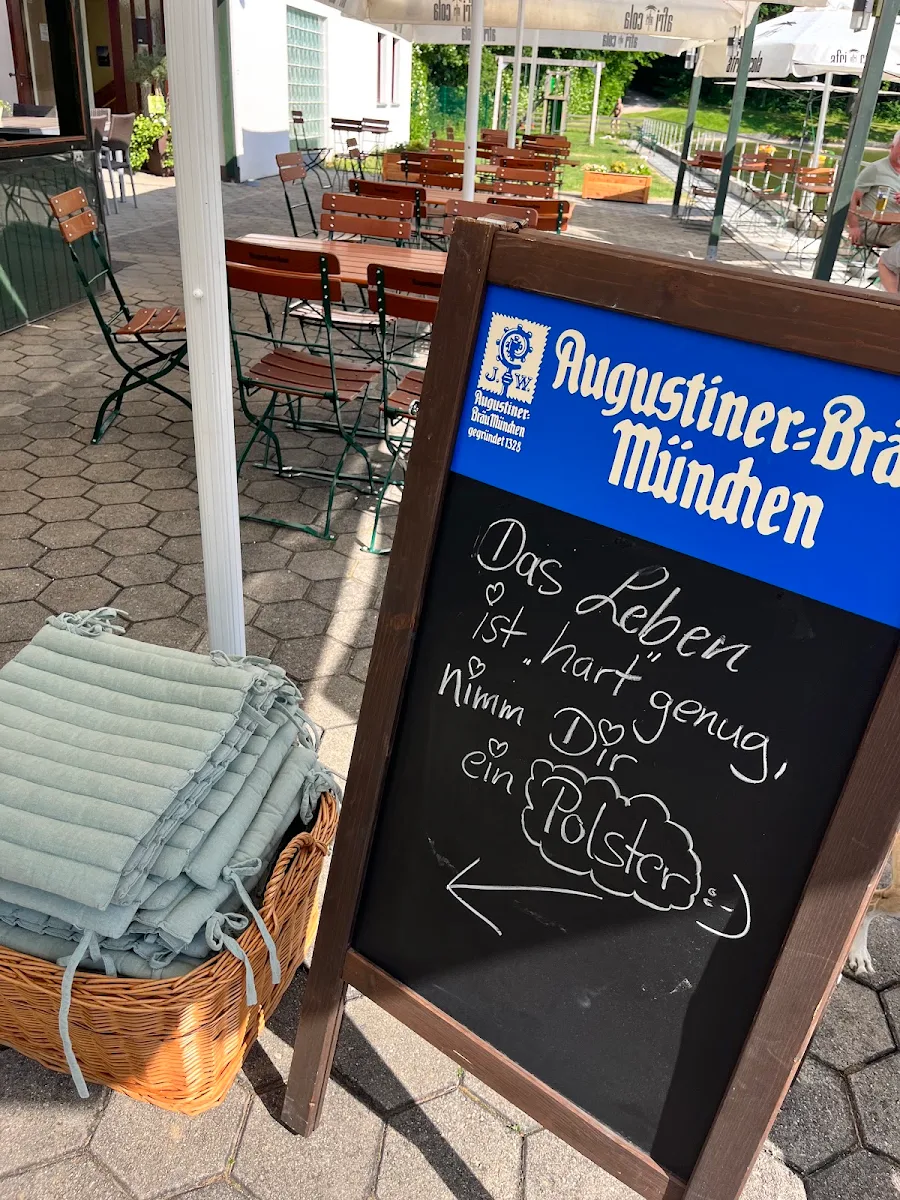 afri cola
afri cola
afri cola
afri cola
J. W.
Augustiner-
Bräu München
gegründet 1328
Augustiner=Brä
München
Das Leben
ist „hart" genug,
nimm Dir
ein Polster :-)